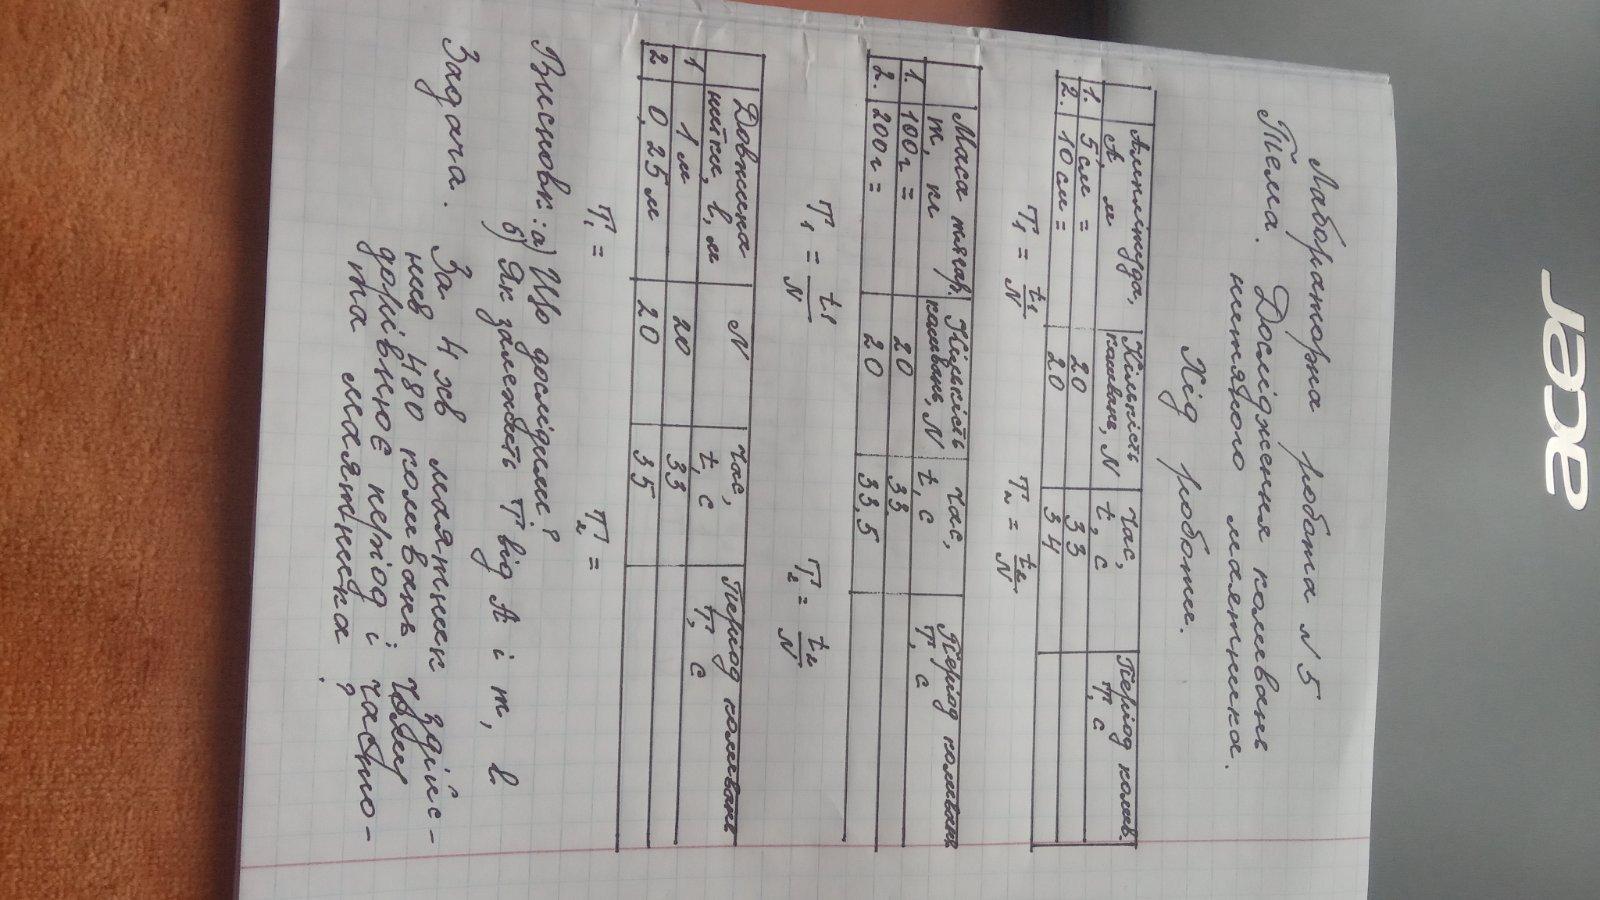 Лабораторна робота N 5
Тема. Дослідження коливань
нитяного маятника.
Хід роботи.
Амплітуда, A, м | Кількість коливань, N | Час, t, с | Період колив. T, с
1. | 5 см = | 20 | 33
2. | 10 см = | 20 | 34
T₁ = t₁/N T₂ = t₂/N
Маса тягар, m, кг | Кількість коливань, N | Час, t, с | Період коливань T, с
1. | 100 г = | 20 | 33
2. | 200 г = | 20 | 33,5
T₁ = t₁/N T₂ = t₂/N
Довжина нитки, l, м | N | Час, t, с | Період коливань T, с
1 | 1 м | 20 | 33
2 | 0,25 м | 20 | 35
T₁ = T₂ =
Висновк: а) Що дослідили?
б) Як залежить T від A і m, l
Задача. За 4 хв маятник здійс-
нив 480 коливань. Чому
дорівнює період і часто-
та маятника?
acer